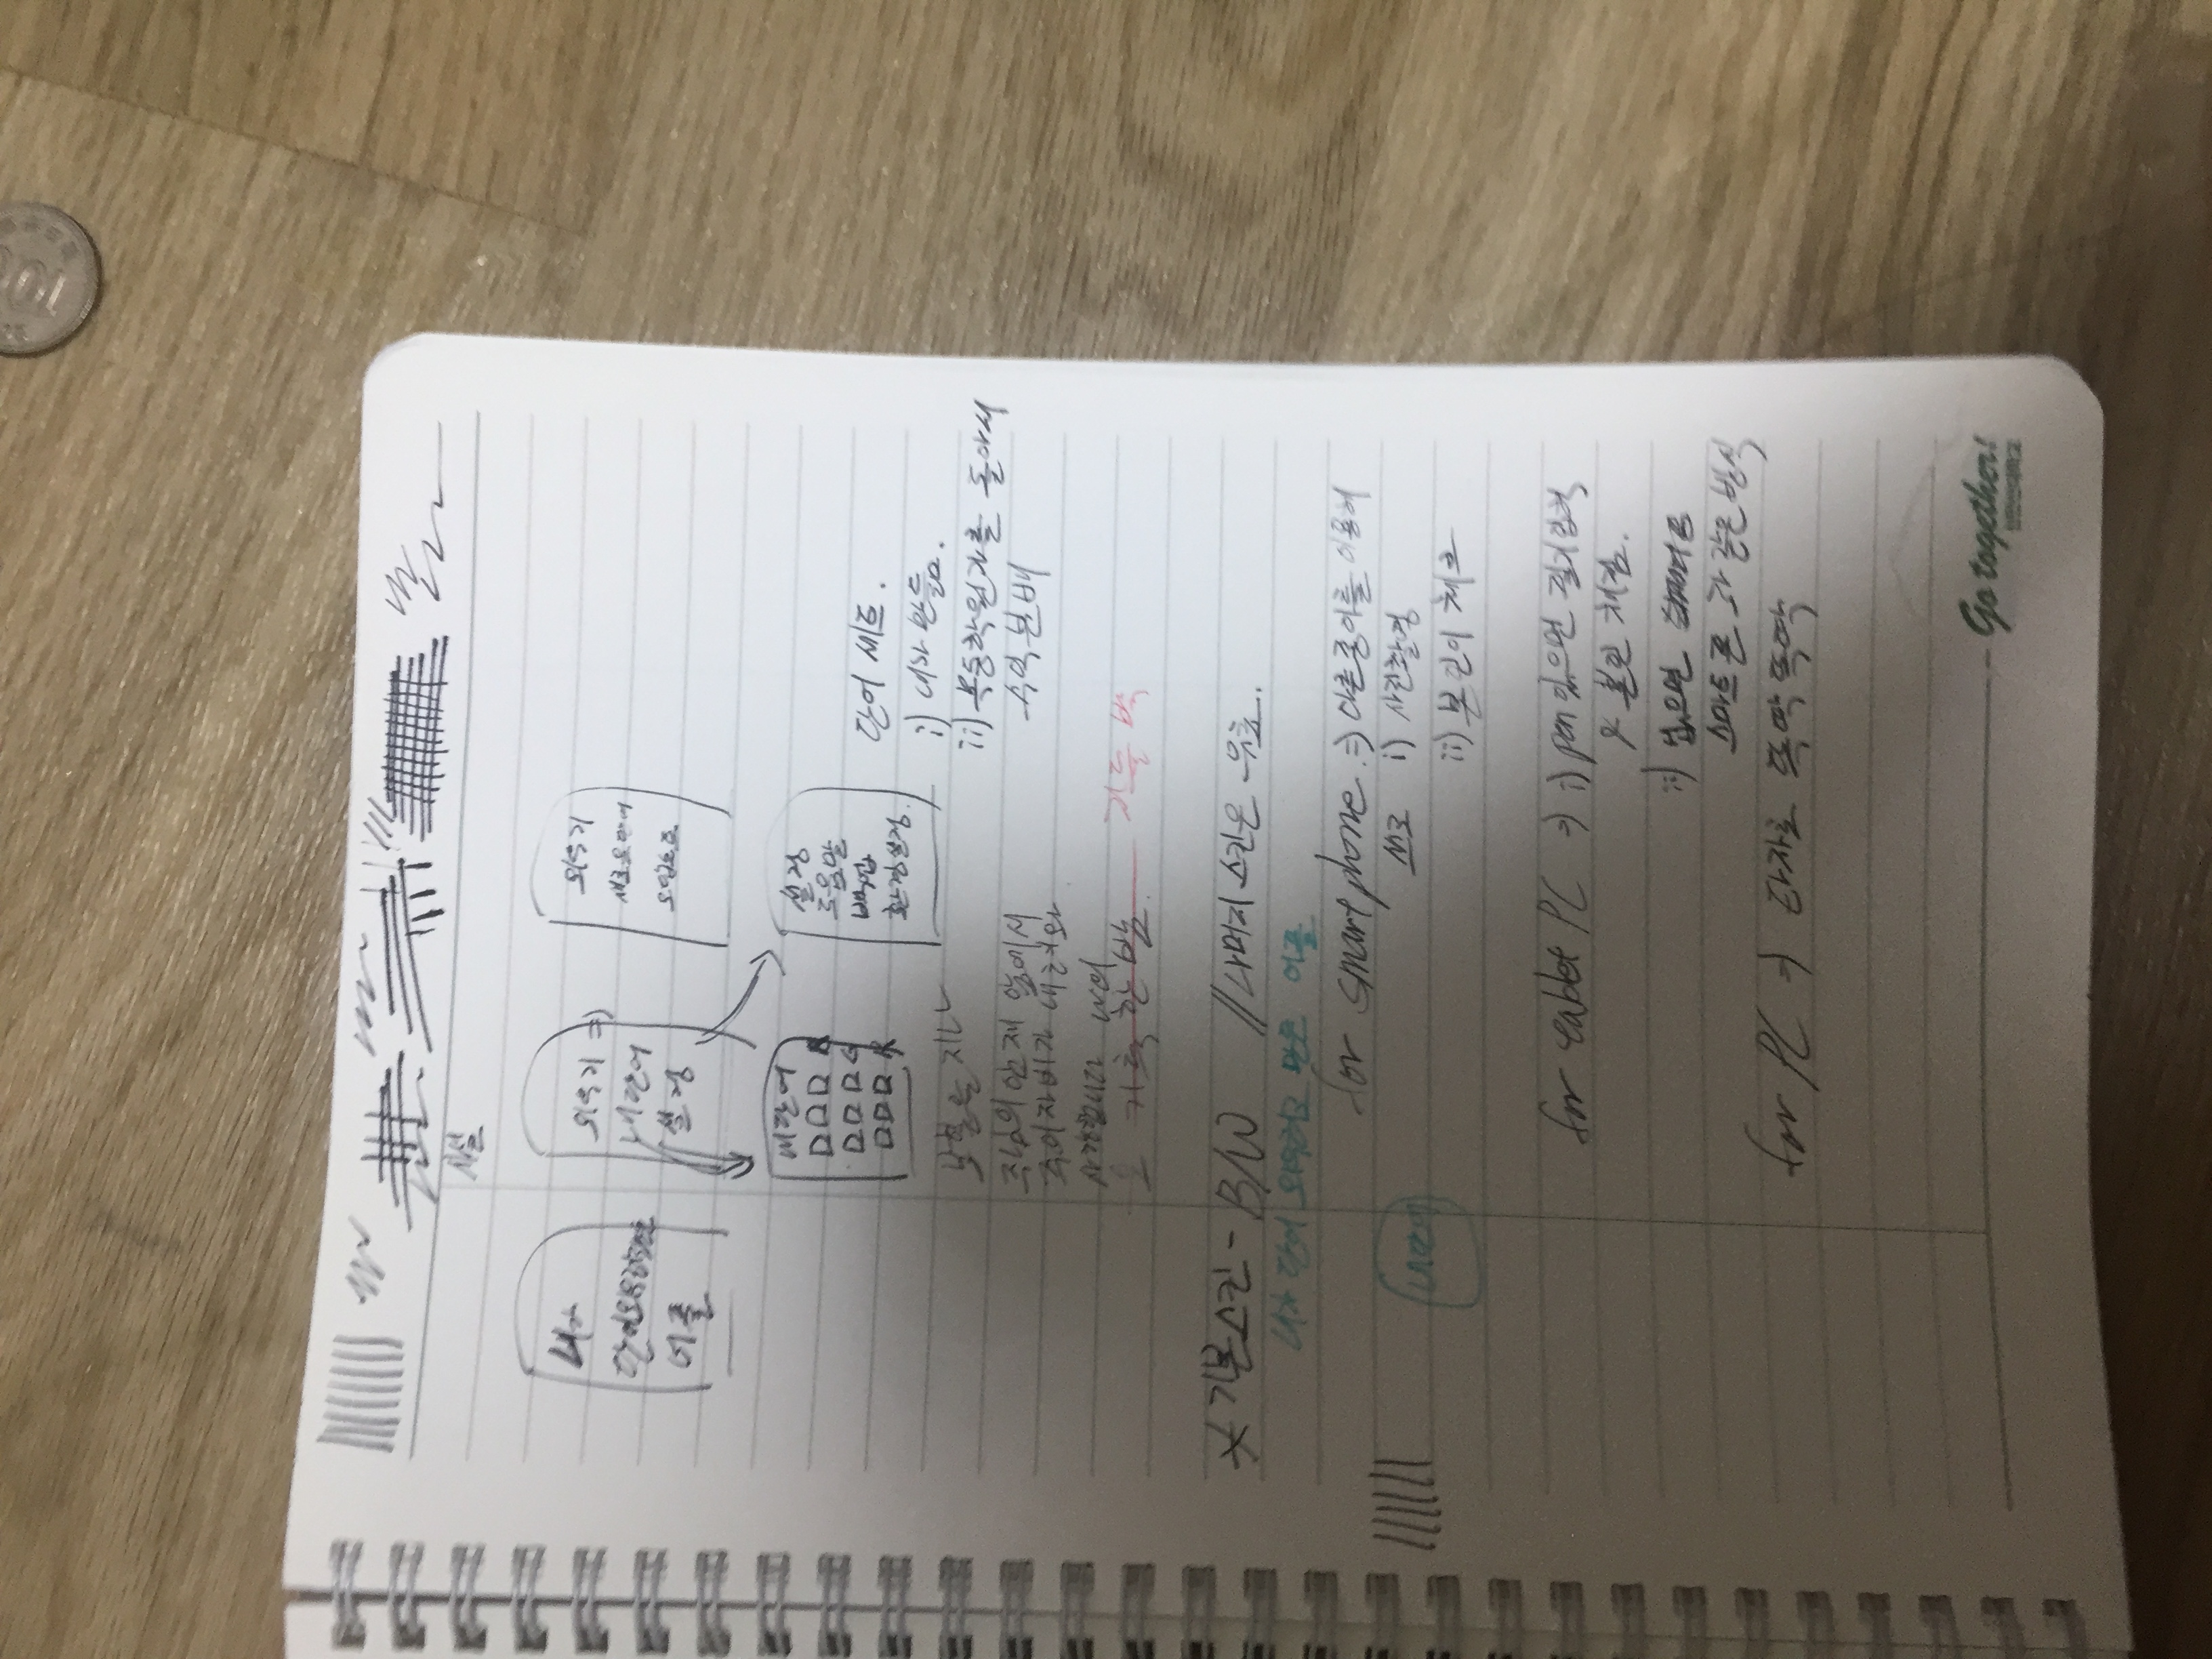 사실
내가
단어외우려고만든
어플
외우기 =>
내단어
설정
외우기
새로운단어
내단어
설정
도움말
백업
환경설정.
단어 세트.
i) 내가 만듦.
ii) 학원가를 돌아서
수익 분배
보혈을 지나
주님의 임재 앞에서
주의 자비가 내려와
사랑합니다 나의
오 거룩한 밤.
* 기본스킨 - B/W // 나머지 스킨은 유료.
내가 단어 외우려고 만든 어플
for smart phone => 다른 종이를 이용해
쓰고 i) 사진촬영
ii) 본인이 체크
내단어
for tablet PC => i) pen 있으면 필기입력
& 본인 채점.
ii) 없으면
스마트폰과 같은 방식
for PC => 타자로 똑딱똑딱
Go together!
100